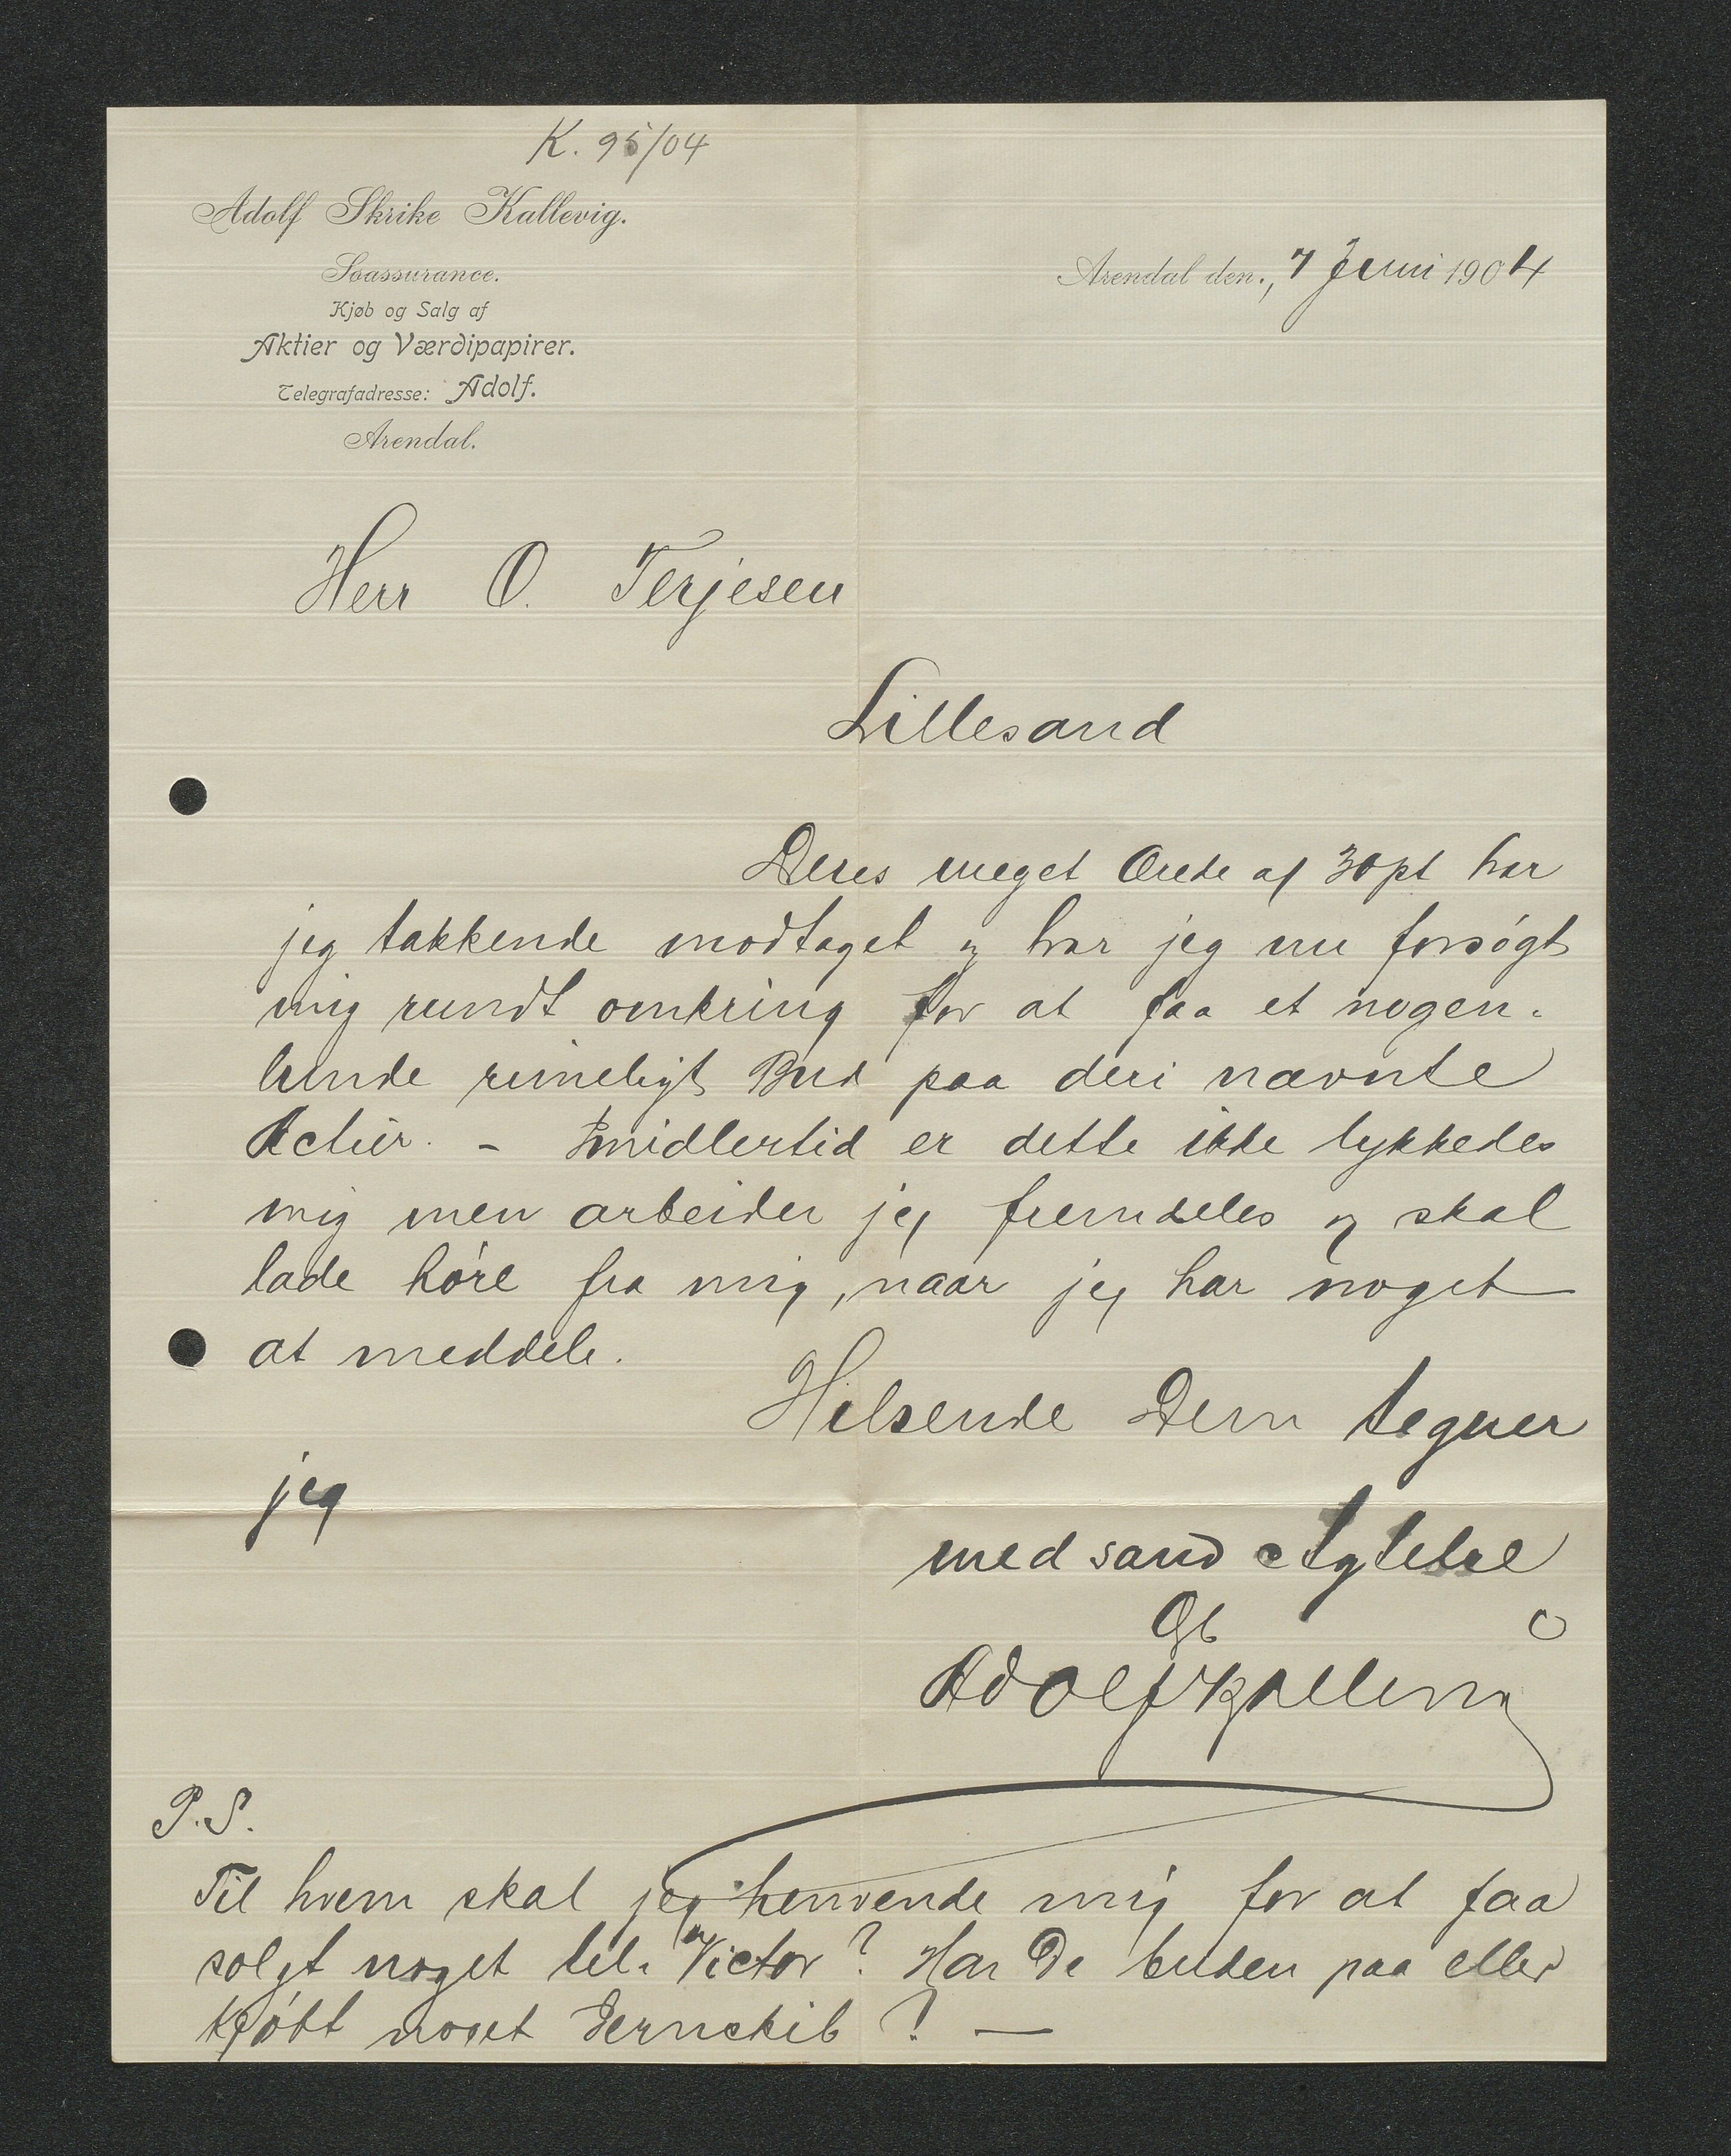 K. 95/04
Adolf Skrike Kallevig.
Søassurance.
Kjøb og Salg af
Aktier og Værdipapirer.
Telegrafadresse: Adolf.
Arendal.
Arendal den., 7 Juni 1904
Herr O. Terjesen
Lillesand
Deres meget Ærede af 30 pt har
jeg takkende modtaget og har jeg nu forsøgt
mig rundt omkring for at faa et nogen-
lunde rimeligt Bud paa deri nævnte
Actier. - Imidlertid er dette ikke lykkedes
mig men arbeider jeg fremdeles og skal
lade høre fra mig, naar jeg har noget
at meddele.
Hilsende Dem tegner
jeg
med sand Agtelse
Adolf Kallevig
P.S.
Til hvem skal jeg henvende mig for at faa
solgt noget til "Victor"? Har De buden paa eller
kjøbt noget Jernskib? —